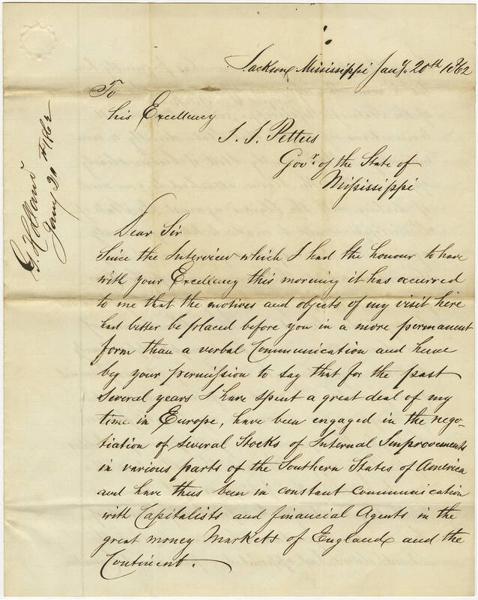 Jackson Mississippi Jany. 20th 1862
To
his Excellency
J. J. Pettus
Govr. of the State of
Mississippi
Dear Sir
Since the Interview which I had the honour to have
with your Excellency this morning it has occurred
to me that the motives and objects of my visit here
had better be placed before you in a more permanent
form than a verbal Communication and hence
beg your permission to say that for the past
several years I have spent a great deal of my
time in Europe, have been engaged in the nego-
tiation of several Stocks of Internal Improvements
in various parts of the Southern States of America
and have thus been in constant communication
with Capitalists and financial Agents in the
great money Markets of England and the
Continent.
Jany 20th 1862